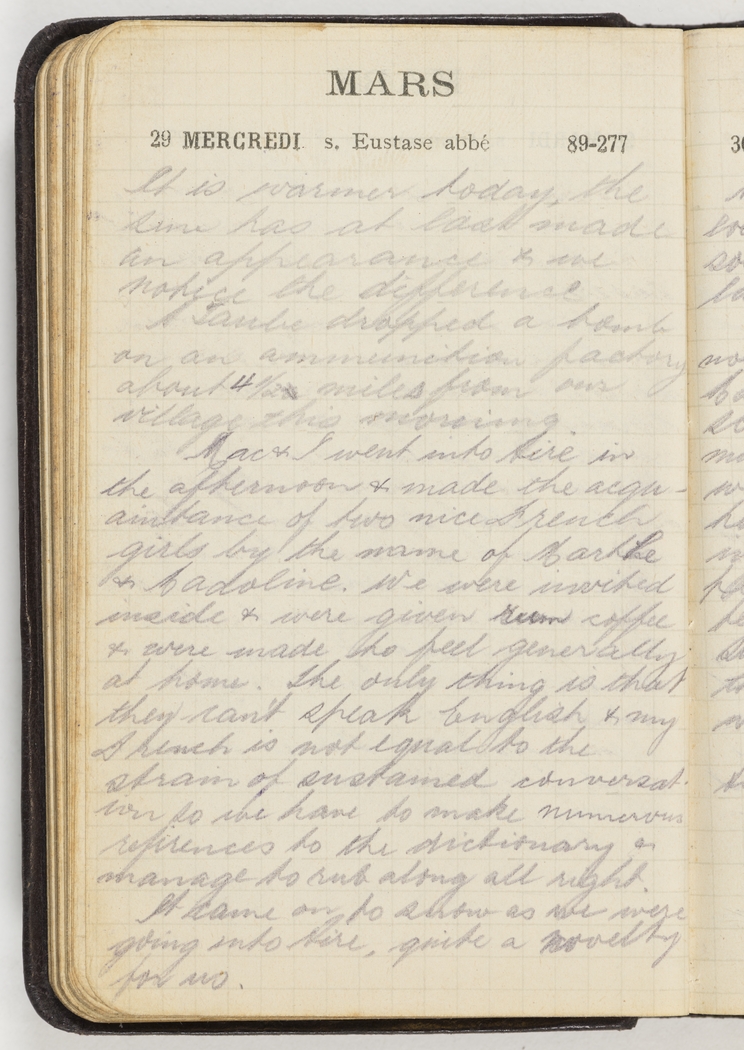 MARS
29 MERCREDI s. Eustase abbé 89-277
It is warmer today, the
sun has at last made
an appearance & we
notice the difference
A Taube dropped a bomb
on an ammunition factory
about 4 1/2 miles from our
village this morning.
Mac & I went into Aire in
the afternoon & made the acqu-
aintance of two nice French
girls by the name of Marthe
& Madoline. We were invited
inside & were given rum coffee
& were made to feel generally
at home. The only thing is that
they can't speak English & my
French is not equal to the
strain of sustained conversat-
ion so we have to make numerous
references to the dictionary &
manage to rub along all right.
It came on to snow as we were
going into Aire, quite a novelty
for us.